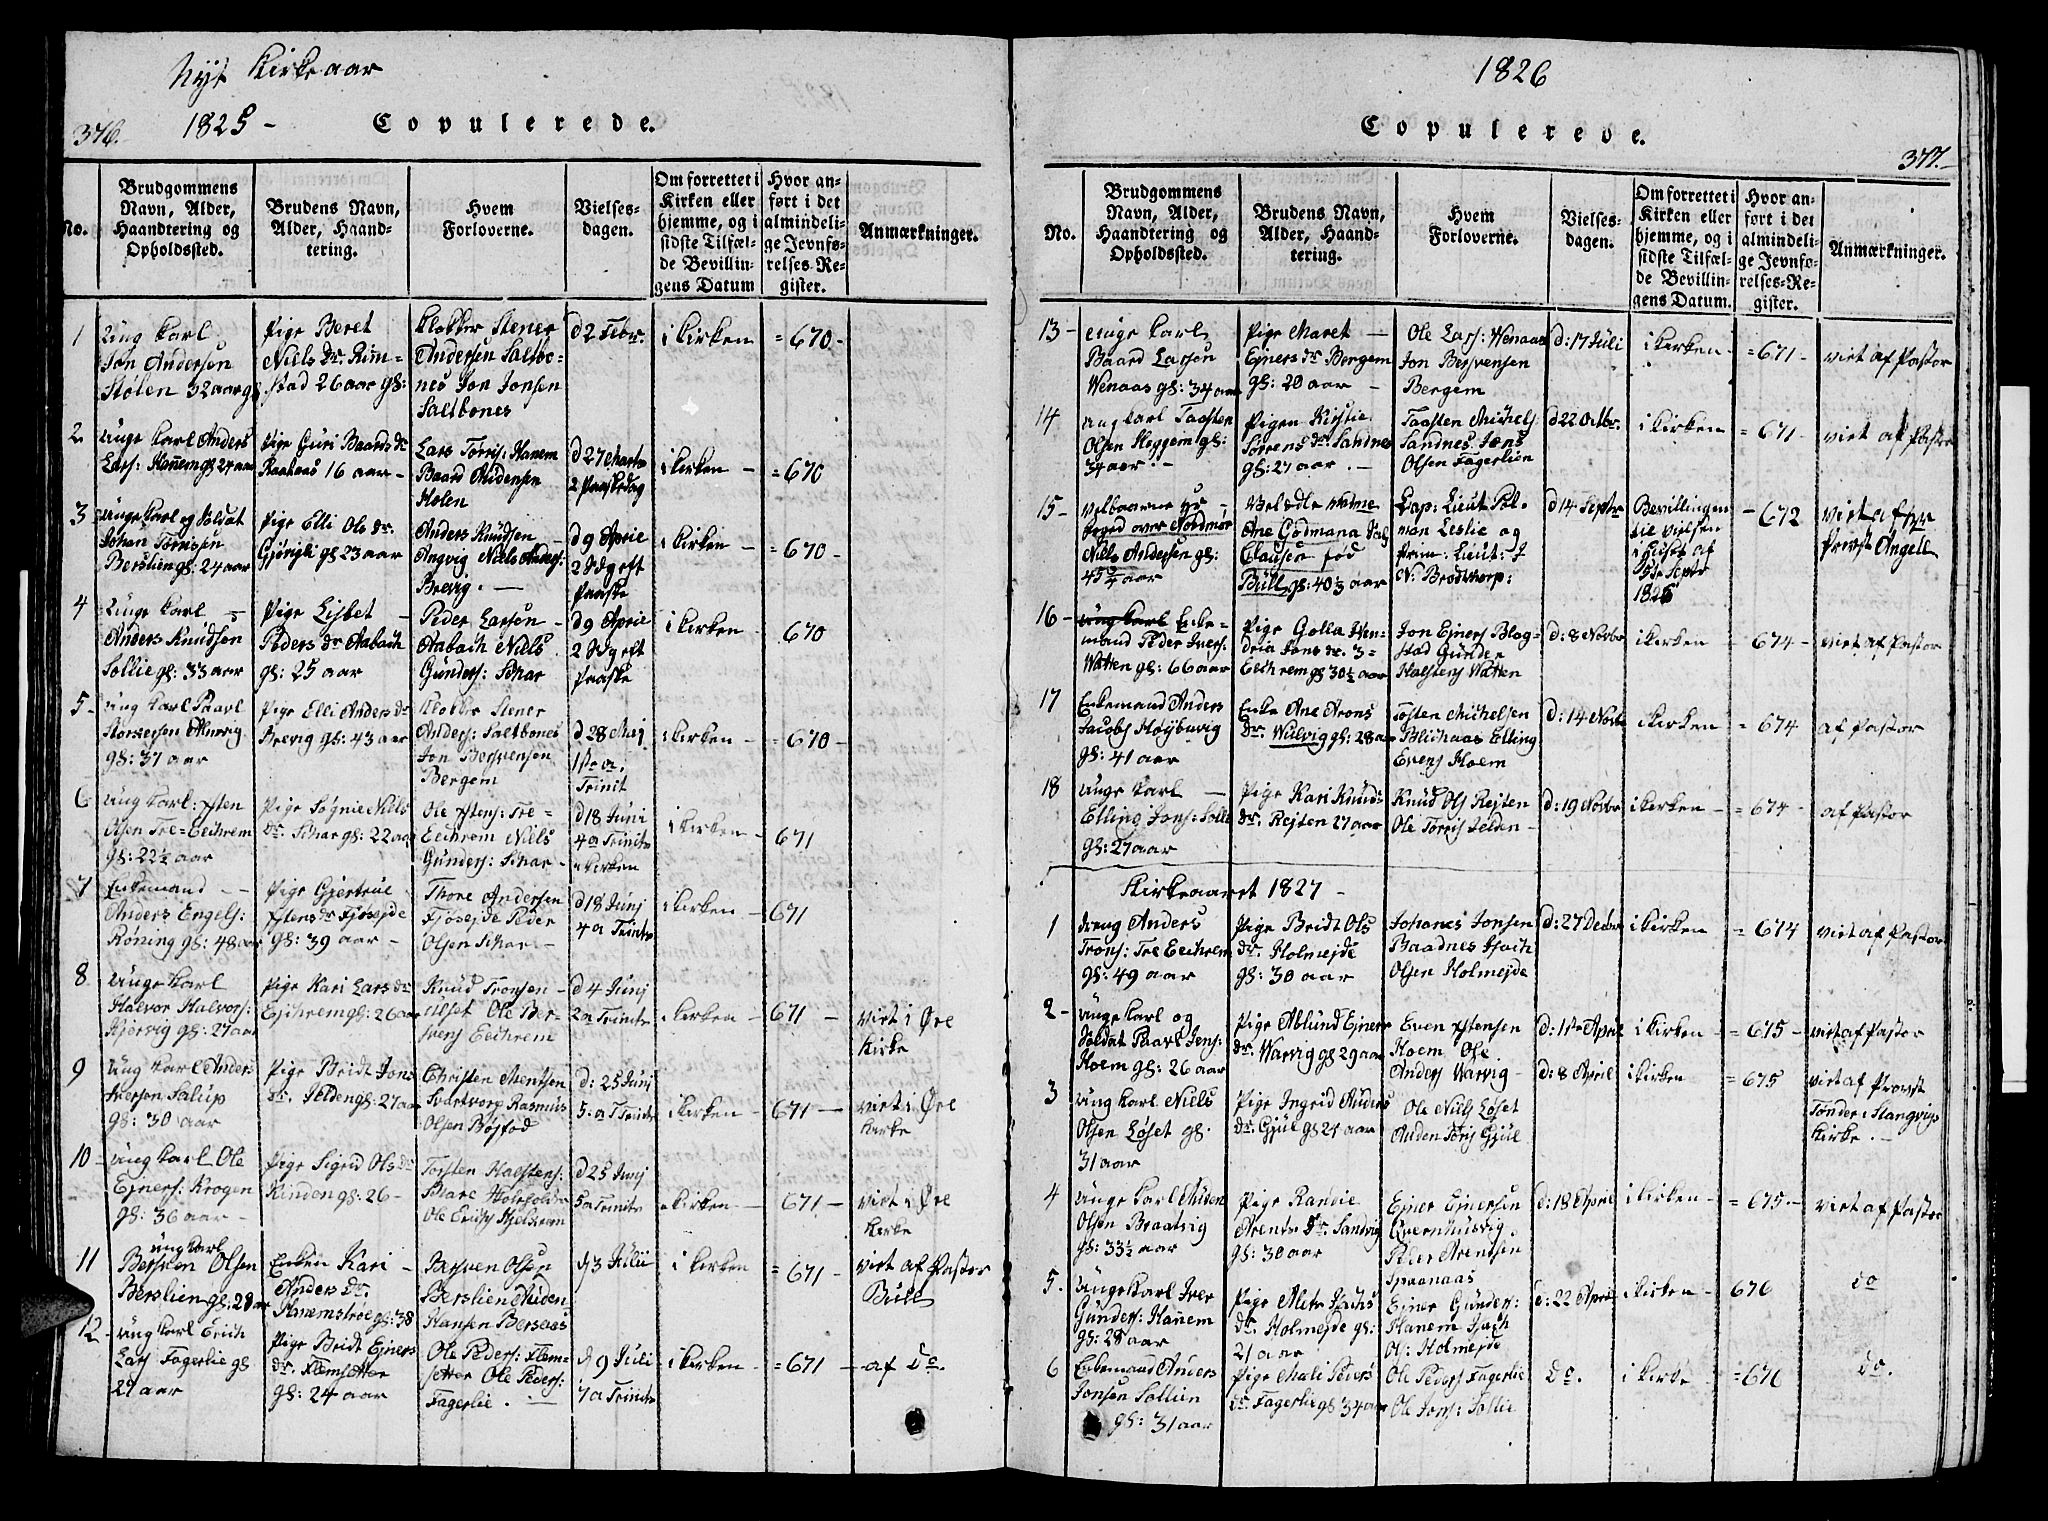 Nyt Kirkeaar
376. 1825 -
Copulerede.
No.
Brudgommens Navn, Alder, Haandtering og Opholdssted.
Brudens Navn, Alder, Haandtering.
Hvem Forloverne.
Vielsesdagen.
Om forrettet i Kirken eller hjemme, og i sidste Tilfælde Bevillingens Datum
Hvor anført i det almindelige Jevnførelses-Register.
Anmærkninger.
1 Ung Karl Pige Beret Klokker Stener d 2 Febr. i Kirken = 670 -
Jon Andersen Niels Dr. Rim- Andersen Saltbo-
Stolen 32 aar gl stad 26 aar gl: nes Jon Jonsen
Saltbones
2 Unge Karl Anders Pige Guri Baards Dr Lars Torris: Hanem d 27 Marts i Kirken - = 670
Lars: Hanem gl 24 aar 16 aar - Baard Audensen 2 Paaskedag
Holen
3 Unge Karl og Soldat Pige Elli Ols Dr. Anders Knudsen d 9 Aprie i Kirken - = 670 -
Johan Torrisen Gjørigli gl 23 aar Angvig Niels 2 Sdg eft
Berslien gl: 24 aar Brevig. Paaske
4 Unge Karl - Pige Lisbet - Peder Larsen d 9 Aprie i Kirken - 670
Anders Knudsen Peders Dr Aabach Aabach Niels 2 Sdg eft
Sollie gl: 33 aar gl: 25 aar Gunders: Skar Paaske
5 - Ung Karl Paavl Pige Elli Anders Dr Klokker Stener d 28 Maj i Kirken - = 670 -
Brevig gl: 43 aar Anders: Saltbones
gl: 37 aar Jon Bersvensen Trinit
Bergem
6 Ung Karl: Isten Pige Sognie Niels Ole Istens: Tre- d 18 Juni i Kirken - 671
Olsen Tre-Eechrem Dr. Skar gl: 22 aar Eechrem Niels 4 a Trinit
gl: 22½ aar Gunders: Skar - i Kirken
7 Enkemand - Pige Gjertrue Thore Andersen d 18 Junj i Kirken - 671
Anders Engels: Istens Dr Fjøsejde Fjøsejde Peder 4 a Trinit
Røning gl: 48 aar gl: 39 aar - Olsen Skar -
8 Unge Karl Pige Kari Lars Dr Knud Tronsen - d 4 Junj i Kirken - 671 - viet i Øre
Halvor Halvors: Ejchrem gl: 26 aar Ole Ber- 2n Trinit Kirke
gl: 27 aar svens Eechrem
9 Ung Karl Anders Pige Bridt Jons Christen Mentsen d: 25 Junj i Kirken - 671 - viet i Øre
Iversen Salup Dr. Jelden gl: 27 aar Svartvorp Rasmus 5: a Trinit Kirke
gl: 30 aar Olsen Bojfod
10 - Ung Karl Ole Pige Sigrid Ols Dr Torsten Halstens: d 25 Junj i Kirken - 671 - viet i Øre
Ejners: Krogen Kinden gl: 26 - 5 a Trinit Kirke
gl: 36 aar - Ole Erichs
11 Ung Karl
Berssven Olsen Enken Kari - Bersven Olsen d 3 Julii i Kirken = 671 - viet af Pastor
Berslien gl: 28 aar Anders Dr. Berslien Auden- Bull
Hanemstroe gl: 38 Hansen Bersaas
12 - Ung Karl Erich Pige Bridt Ejners Ole Peders: Flem- d 9 Juli i Kirken - = 671 - af Do.
Lars Fagerlie gl Dr. Flemsetter setter Ole Peders: 7 a Trinit
27 aar gl: 24 aar Fagerlie.
1826
Copulerede.
377.
No.
Brudgommens Navn, Alder, Haandtering og Opholdssted.
Brudens Navn, Alder, Haandtering.
Hvem Forloverne.
Vielsesdagen.
Om forrettet i Kirken eller hjemme, og i sidste Tilfælde Bevillingens Datum.
Hvor anført i det almindelige Jevnførelses-Register.
Anmærkninger.
13 - Unge Karl Pige Maret - Ole Lars: Wenaas d: 17 Juli i Kirken - = 671 - viet af Pastor
Baard Larsen Ejners Dr Bergem Jon Bersvensen
Wenaas gl: 34 aar gl: 20 aar - Bergem
14 Ung Karl Taasten Pigen Kirstie Taasten Michels d 22 Octbr. i Kirken = 671 - viet af Pastor
Olsen Heggem gl: Sørrens Dr: Sandnes Sandnes Jens
34 aar. - gl: 27 aar. - Olsen Fagerlien
15 - Velbaarne Hr - Veledle Madme Cap: Lieut Pet- d 14 Septbr Bevillingen - 672 viet af Hr
Foged over Nordmør Ane Godmana Sal man Leslie og til Vielsen Provst Angell
Niels Andersen gl: Clausen fød Prim: Lieut: J i Huset af
45¾ aar Bull gl: 40⅓ aar N: Brodtkorp: 5de Septr
1826
16 - Ung Karl Enke- Pige Golla Hen- Jon Ejners Blog- d: 8 Novbr i Kirken - 674 - viet af Pastor
mand Peder Ivers: dria Jens Dr. 3 = stad Gunder
Watten gl: 66 aar Eechrem gl 30½ aar Halstens Watten
17 Enkemand Anders Enke Ane Arons Tosten Michelsen d: 14 Novbr i Kirken = 674 - af Pastor
Jacobs Høybuvig Dr. Wulvig gl: 28 aar Blichaas Elling
gl: 41 aar Evens Hoem
18 Unge Karl - Pige Kari Knud: Knud Ols Rejten d: 19 Novbr i Kirken - = 674 - af Pastor
Elling Jons: Solli Dr. Rejten 27 aar Ole Torris Jelden -
gl: 27 aar
Kirkeaaret 1827 -
1 Dreng Anders Pige Bridt Ols Johanes Jonsen d: 27 Decbr i Kirken - = 674 viet af Pastor
Trons: Tre Eechrem Dr. Holmejde Baadnes Isach
gl: 49 aar gl: 30 aar Olsen Holmejde
2 - Unge Karl og Pige Ablund Ejner Even Istensen d: 1ste April i Kirken - = 675 - viet af Pastor
Soldat Paavl Jens: Dr. Warvig gl 29 aar Hoem Ole
Hoem gl: 26 aar Anders Warvig -
3 Ung Karl Niels Pige Ingrid Anders Ole Niels Løset d: 8 April i Kirken = 675 viet af Provst
Olsen Løset gl: Dr. Gjul gl 24 aar Anden Toris Gjul Tønder i Stangvigs
31 aar Kirke. -
4 Unge Karl Auden Pige Randie Ejner Ejnersen d: 18 April i Kirken - = 675 - viet af Pastor
Olsen Braatvig Arents Dr. Sandvig Qvernhusvig
gl: 33½ aar gl: 30 aar Peder Arentsen
5. Unge Karl Iver Pige Alets Isachs Spaanaas d: 22 April i Kirken - 676 do
Gunders: Hanem Dr. Holmejde gl: Ejner Gunders:
gl: 28 aar 21 aar Hanem Isach
Ols: Holmejde
6 Enkemand Anders Pige Mali Peders Ole Peders Fagerlie Do. i Kirke = 676 do.
Jonsen Sollien Dr. Fagerlie gl 34 aar Ole Jons: Sollie
gl: 31 aar